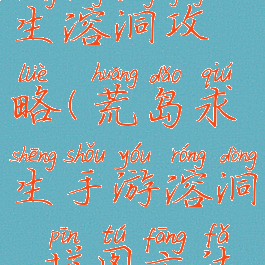 生溶洞攻
lüè huāng dǎo qiú
略(荒岛求
shēng shǒu yóu róng dòng
生手游溶洞
pīn tú fāng fǎ
拼图方法